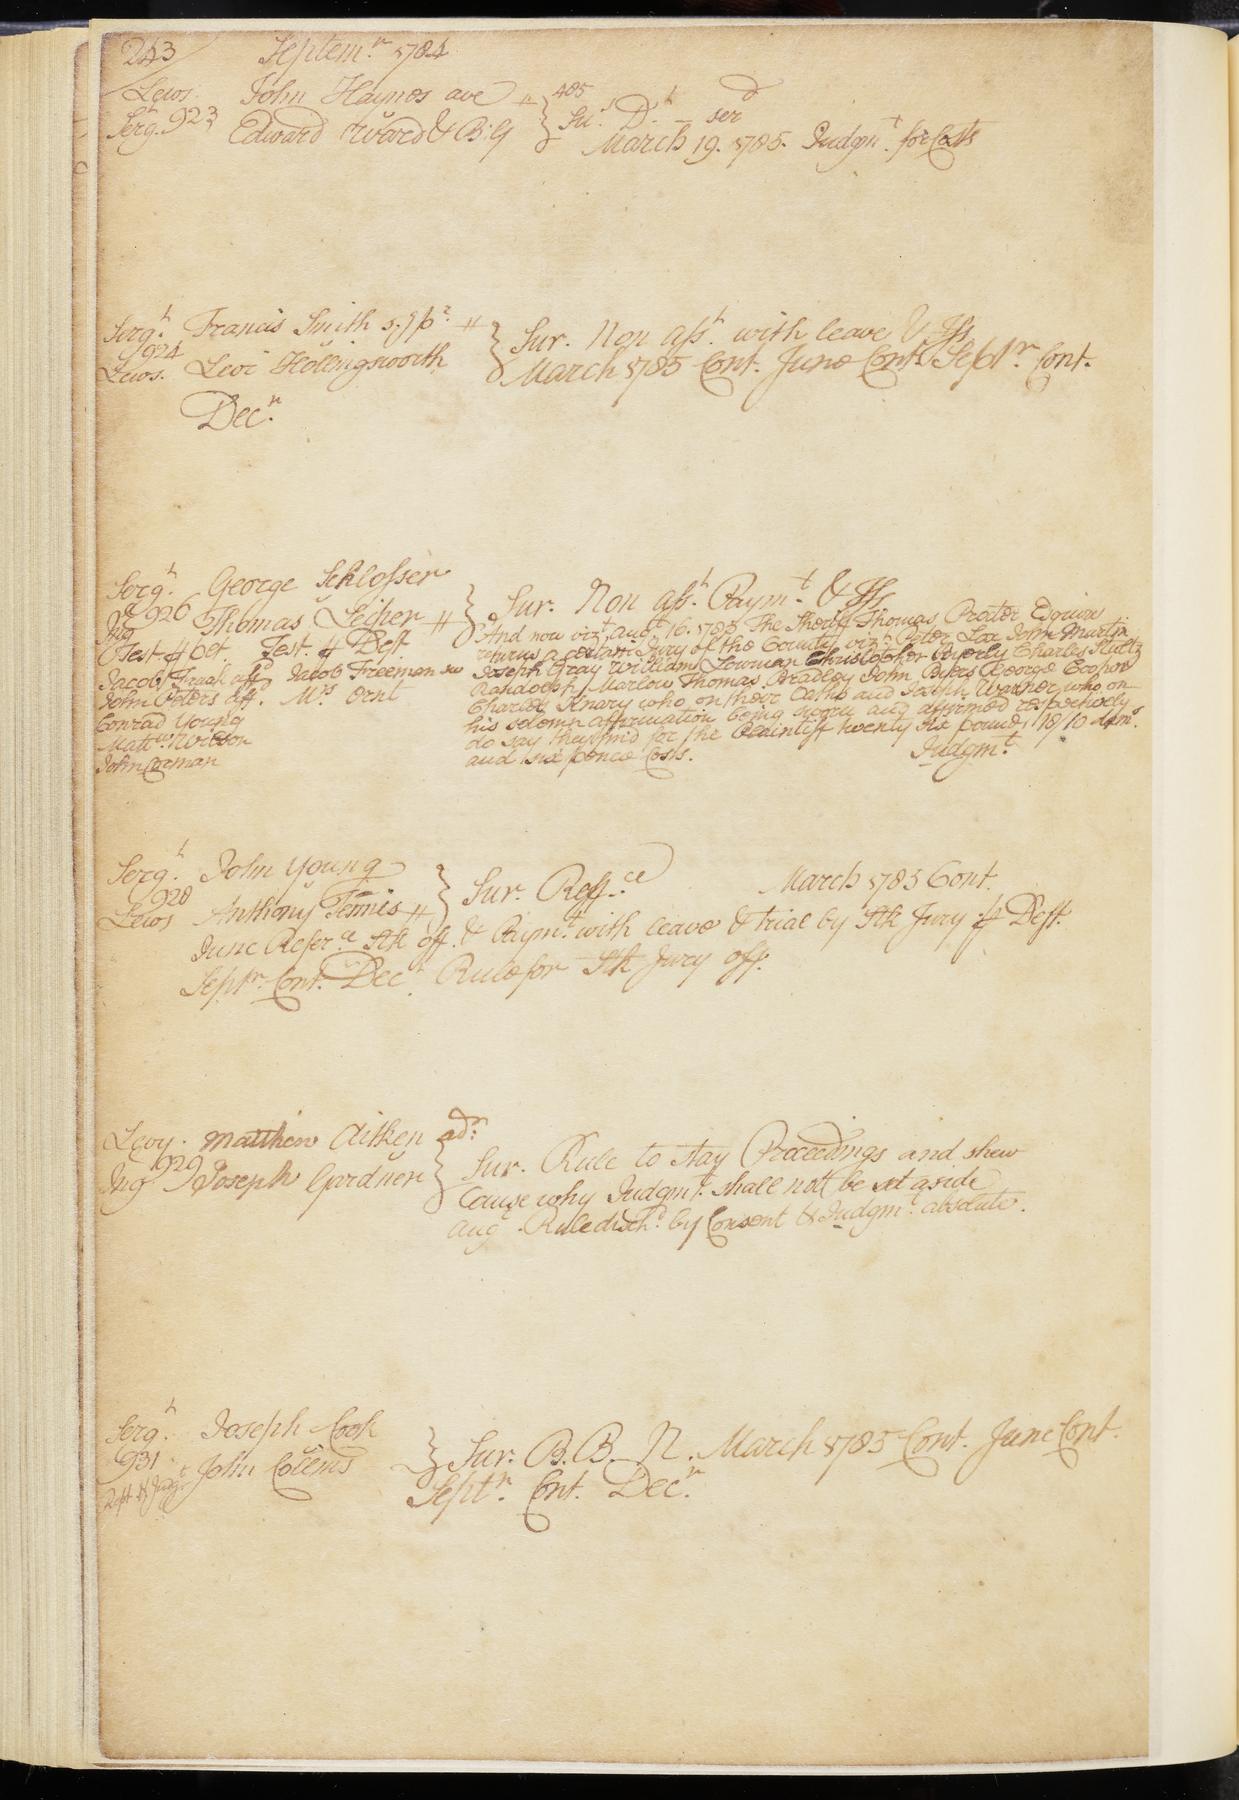 243 Septem.r 1784
Lews. John Haynes ave
Serg.t 923 Edward Ward & B: G } 405 Su.s D.t – ser.d
March 19. 1785. Judgm.t for Costs
Serg.t Francis Smith
924
Lews. Levi Hollingsworth } Sur. Non ass.t with leave &
March 1785 Cont. June Cont. Sept.r Cont.
Dec.r
Serg.t George Schlosser
926 Thomas Leiper } Sur. Non ass.t Paym.t &
Ing
Test. Test. Deft
Jacob Jacob Freeman sw
John Peters aff. M.rs Ornt
Conrad Young
Matt.w Wilson
John Corman
And now viz.t Aug.t 16. 1785 The Sheriff Thomas Proctor Esquire
returns a certain Jury of the County viz.t Peter Lex John Martin
Joseph Gray William Lowman Christopher Byerly Charles Stultz
Randolph Marlow Thomas Bradley John George
Charles Knary who on their Oaths and Joseph Warner who on
his solemn affirmation being sworn and affirmed respectively
do say they find for the Plaintiff twenty six pounds 18/10 dam.s
and six pence Costs. Judgm.t
Serg.t John Young
928
Lews Anthony Tennis } Sur. Reff.ce March 1785 Cont.
June Refer.ce Stk off. & Paym.t with leave & trial by Stk Jury Deft.
Sept.r Cont. Dec.r Rule for Stk Jury off.
Levy. Matthew Aitken ad.r
Ing 929 Joseph Gardner } Sur. Rule to stay Proceedings and shew
Cause why Judgm.t shall not be set aside
Aug.t Rule disch.d by Consent & Judgm.t absolute.
Serg.t Joseph Cook
931 John Collins } Sur. B. B. N. March 1785 Cont. June Cont.
Sept.r Cont. Dec.r